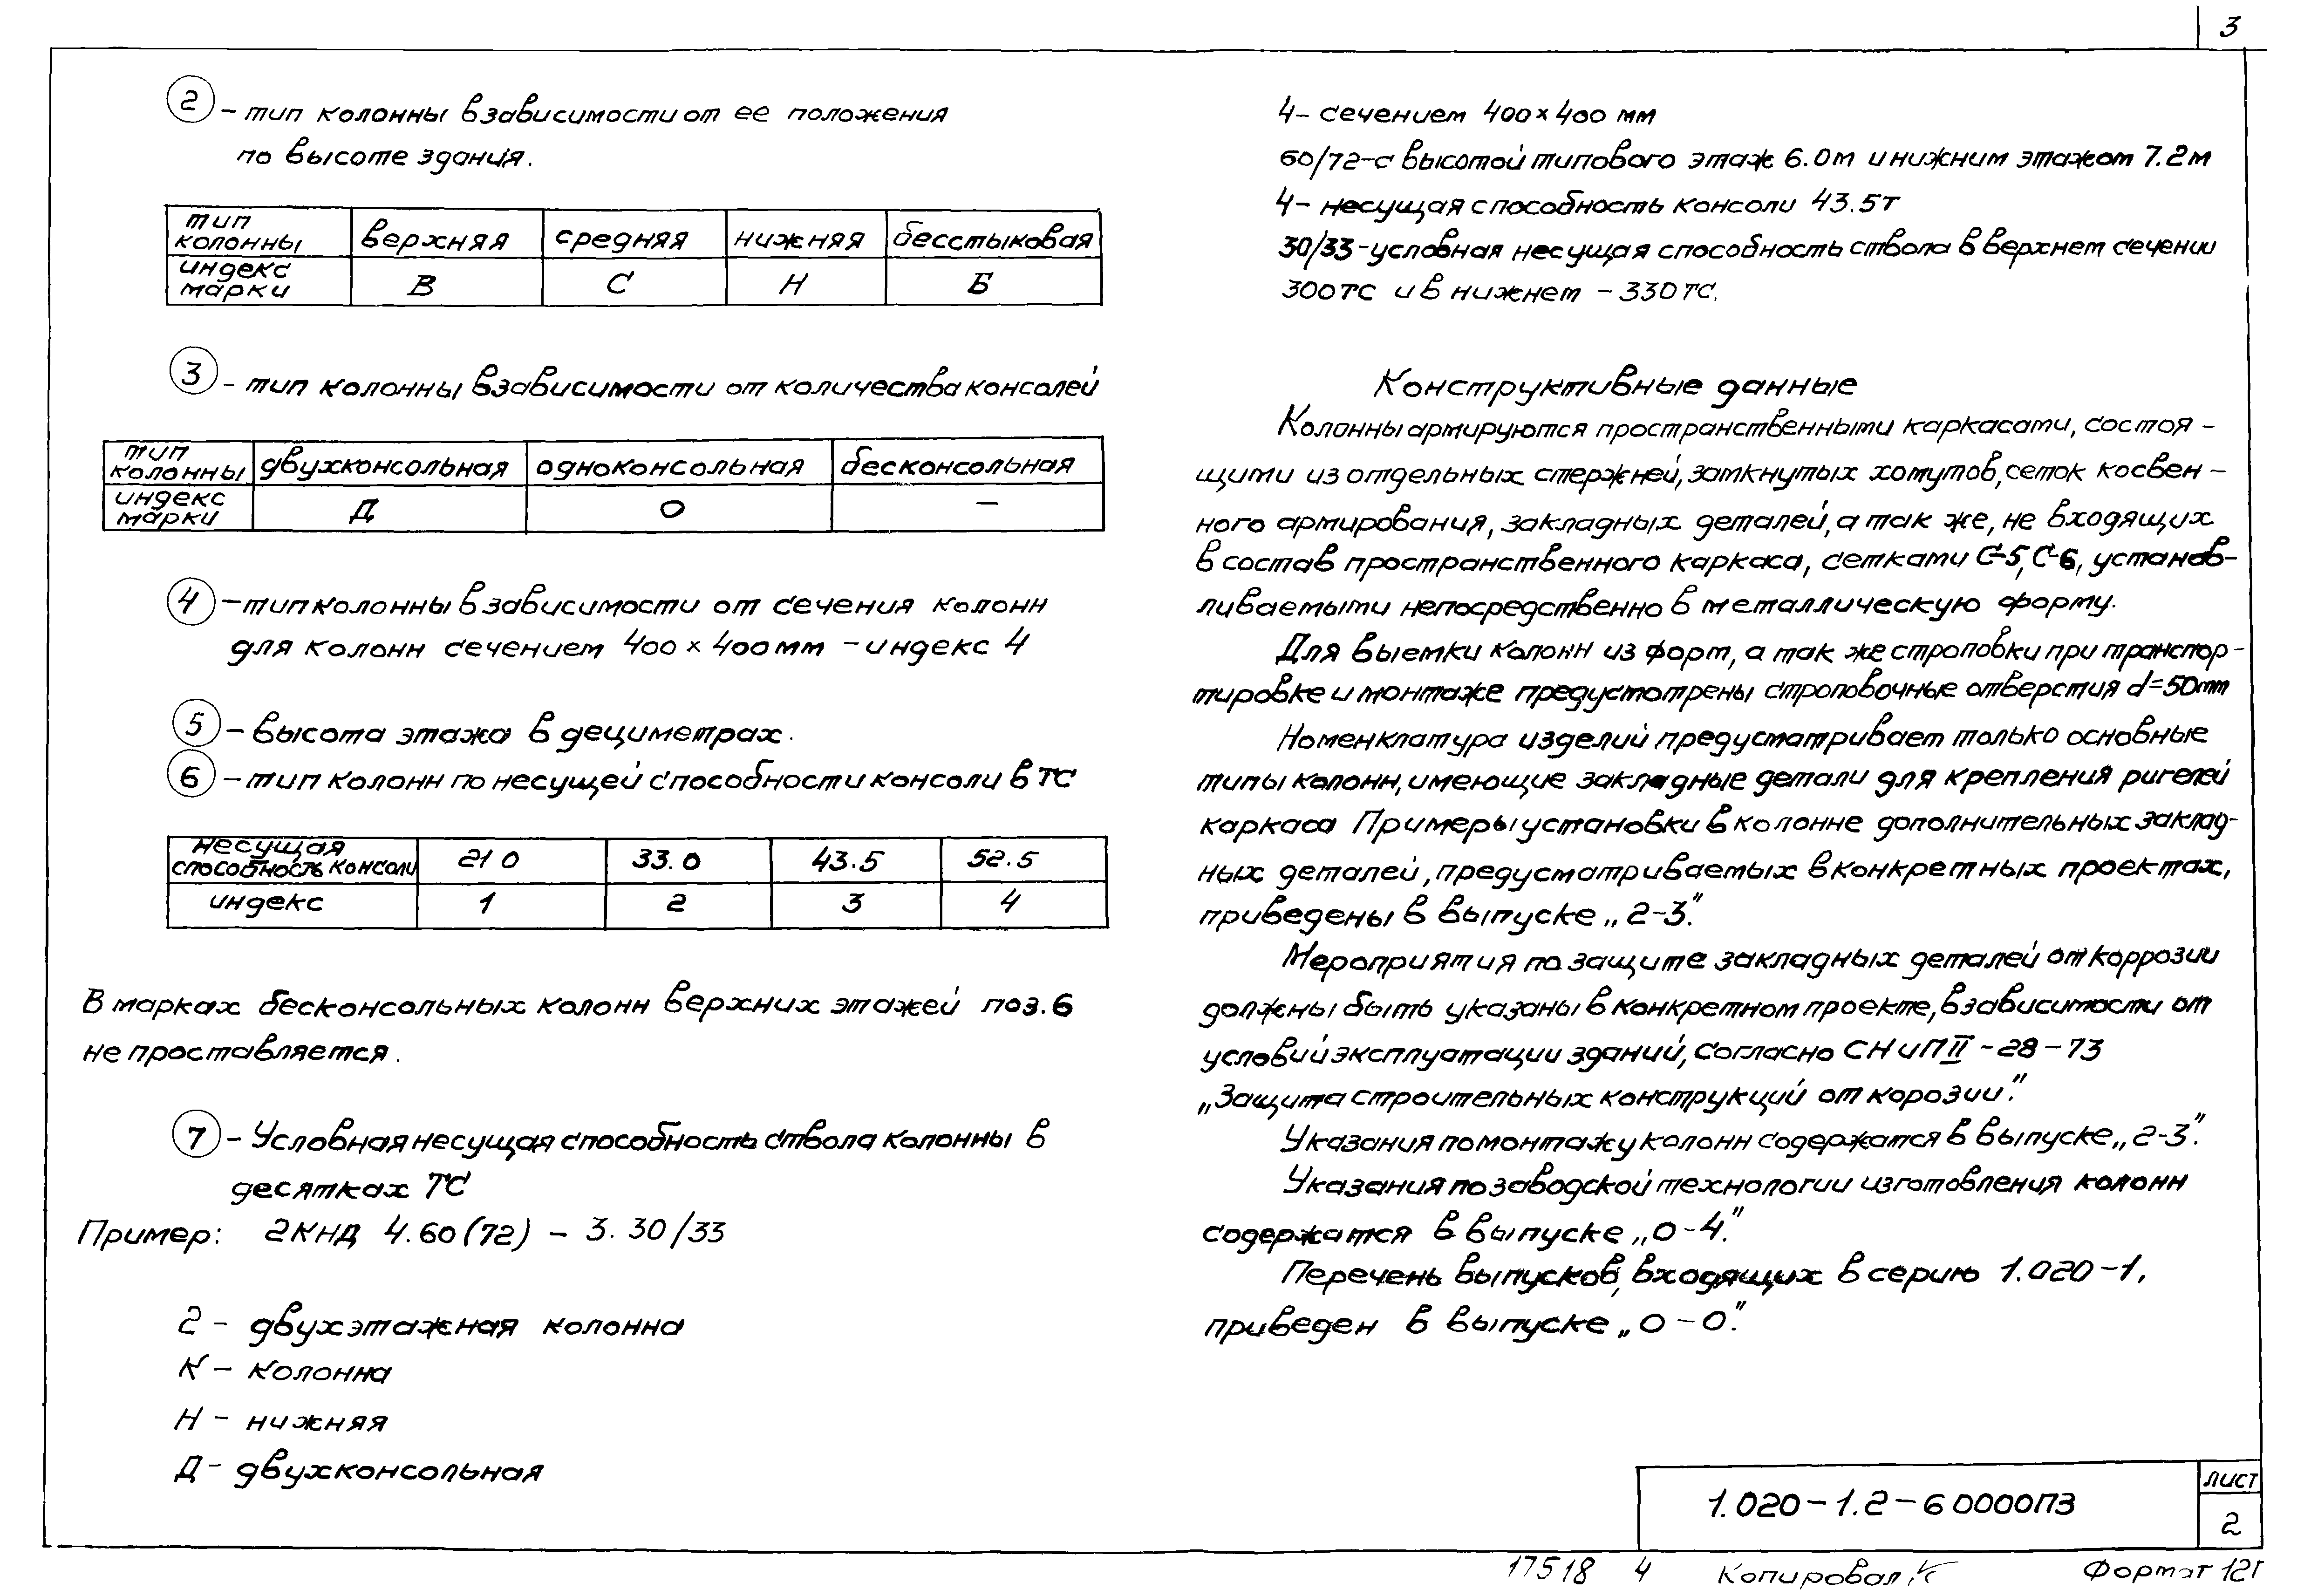 3
2 – тип колонны в зависимости от ее положения
по высоте здания.
тип колонны верхняя средняя нижняя бесстыковая
индекс марки В С Н Б
3 – тип колонны в зависимости от количества консолей
тип колонны двухконсольная одноконсольная бесконсольная
индекс марки Д О –
4 – тип колонны в зависимости от сечения колонн
для колонн сечением 400 × 400мм – индекс 4
5 – высота этажа в дециметрах.
6 – тип колонн по несущей способности консоли в ТС
несущая способность консоли 21 0 33.0 43.5 52.5
индекс 1 2 3 4
В марках бесконсольных колонн верхних этажей поз.6
не проставляется.
7 – Условная несущая способность ствола колонны в
десятках ТС
Пример: 2КНД 4.60(72) – 3. 30/33
2 – двухэтажная колонна
К – колонна
Н – нижняя
Д – двухконсольная
4 – сечением 400 × 400 мм
60/72 – с высотой типового этаж 6.0м и нижним этажом 7.2м
4 – несущая способность консоли 43.5т
30/33 – условная несущая способность ствола в верхнем сечении
300тс и в нижнем – 330тс.
Конструктивные данные
Колонны армируются пространственными каркасами, состоя –
щими из отдельных стержней, замкнутых хомутов, сеток косвен –
ного армирования, закладных деталей, а так же, не входящих
в состав пространственного каркаса, сетками С-5, С-6, установ–
ливаемыми непосредственно в металлическую форму.
Для выемки колонн из форм, а так же строповки при транспор –
тировке и монтаже предусмотрены строповочные отверстия d=50мм
Номенклатура изделий предусматривает только основные
типы колонн, имеющие закладные детали для крепления ригелей
каркаса Примеры установки в колонне дополнительных заклад–
ных деталей, предусматриваемых в конкретных проектах,
приведены в выпуске „2-3".
Мероприятия по защите закладных деталей от коррозии
должны быть указаны в конкретном проекте, в зависимости от
условий эксплуатации зданий, согласно СНиП II – 28 – 73
„Защита строительных конструкций от корозии".
Указания по монтажу колонн содержатся в выпуске „2-3".
Указания по заводской технологии изготовления колонн
содержатся в выпуске „0-4".
Перечень выпусков, входящих в серию 1.020-1,
приведен в выпуске „0-0".
1.020 – 1.2 – 6 0000ПЗ
лист
2
17518 4 Копировал Формат 12г